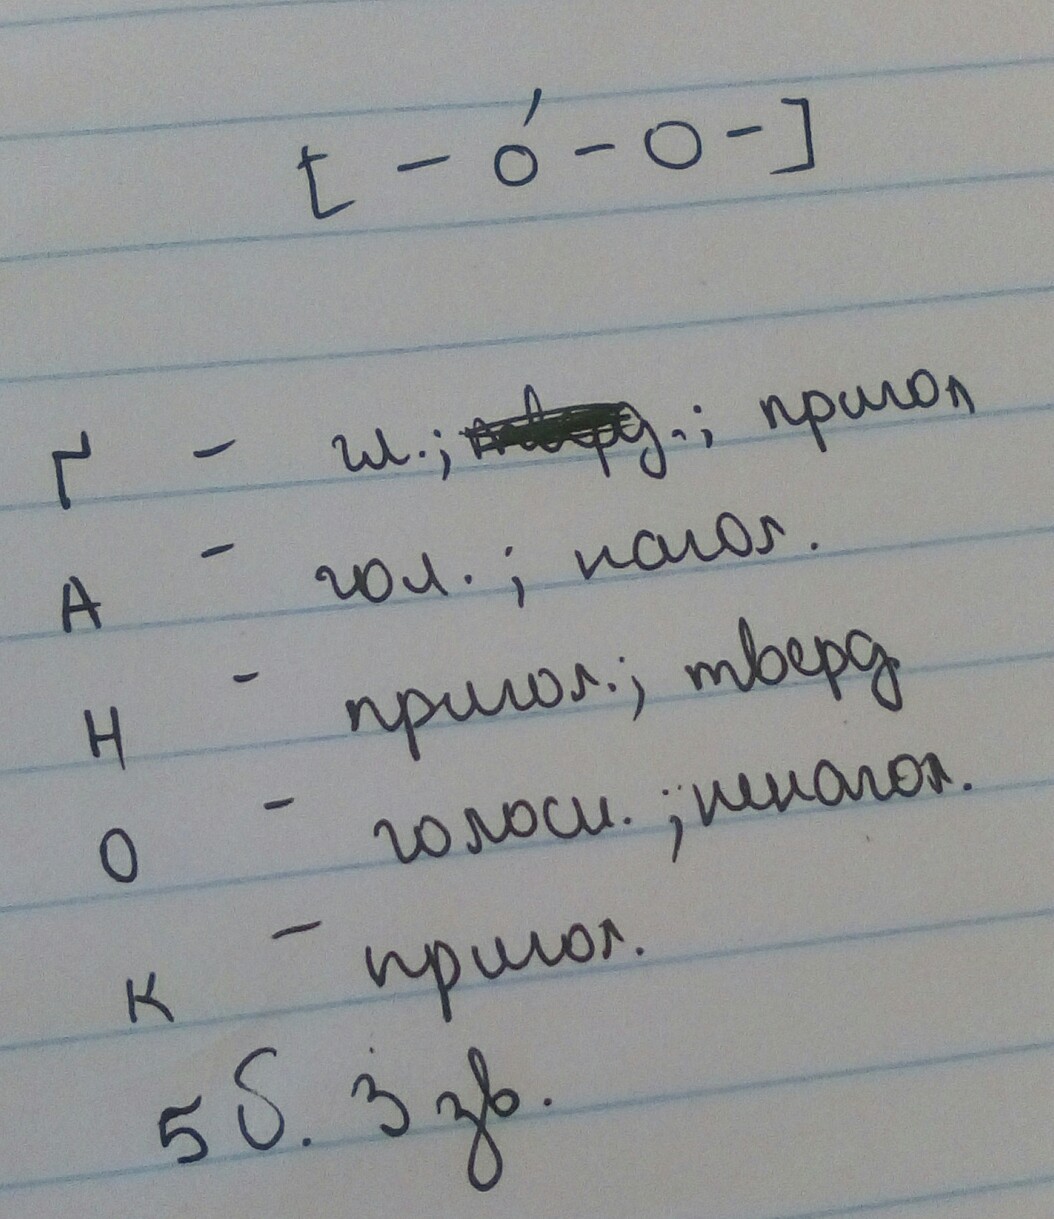 [ – О́ – О – ]
Ґ – гл.; тверд.; пригол
А – гол.; нагол.
Н – пригол.; тверд.
О – голосн.; ненагол.
К – пригол.
5 б. 3 зв.